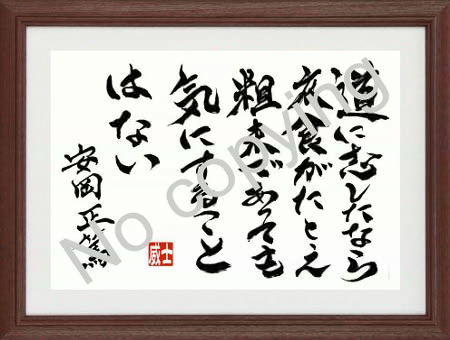 道に志したなら
衣食がたとえ
粗末であっても
気にすること
はない
安岡正篤
士威
No copying